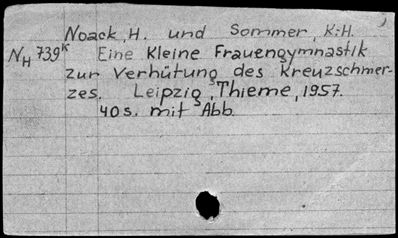 Noack, H. und Sommer, K.H.
N_H 739^K Eine kleine Frauengymnastik
zur Verhütung des Kreuzschmer-
zes. Leipzig, Thieme, 1957.
40 s. mit Abb.